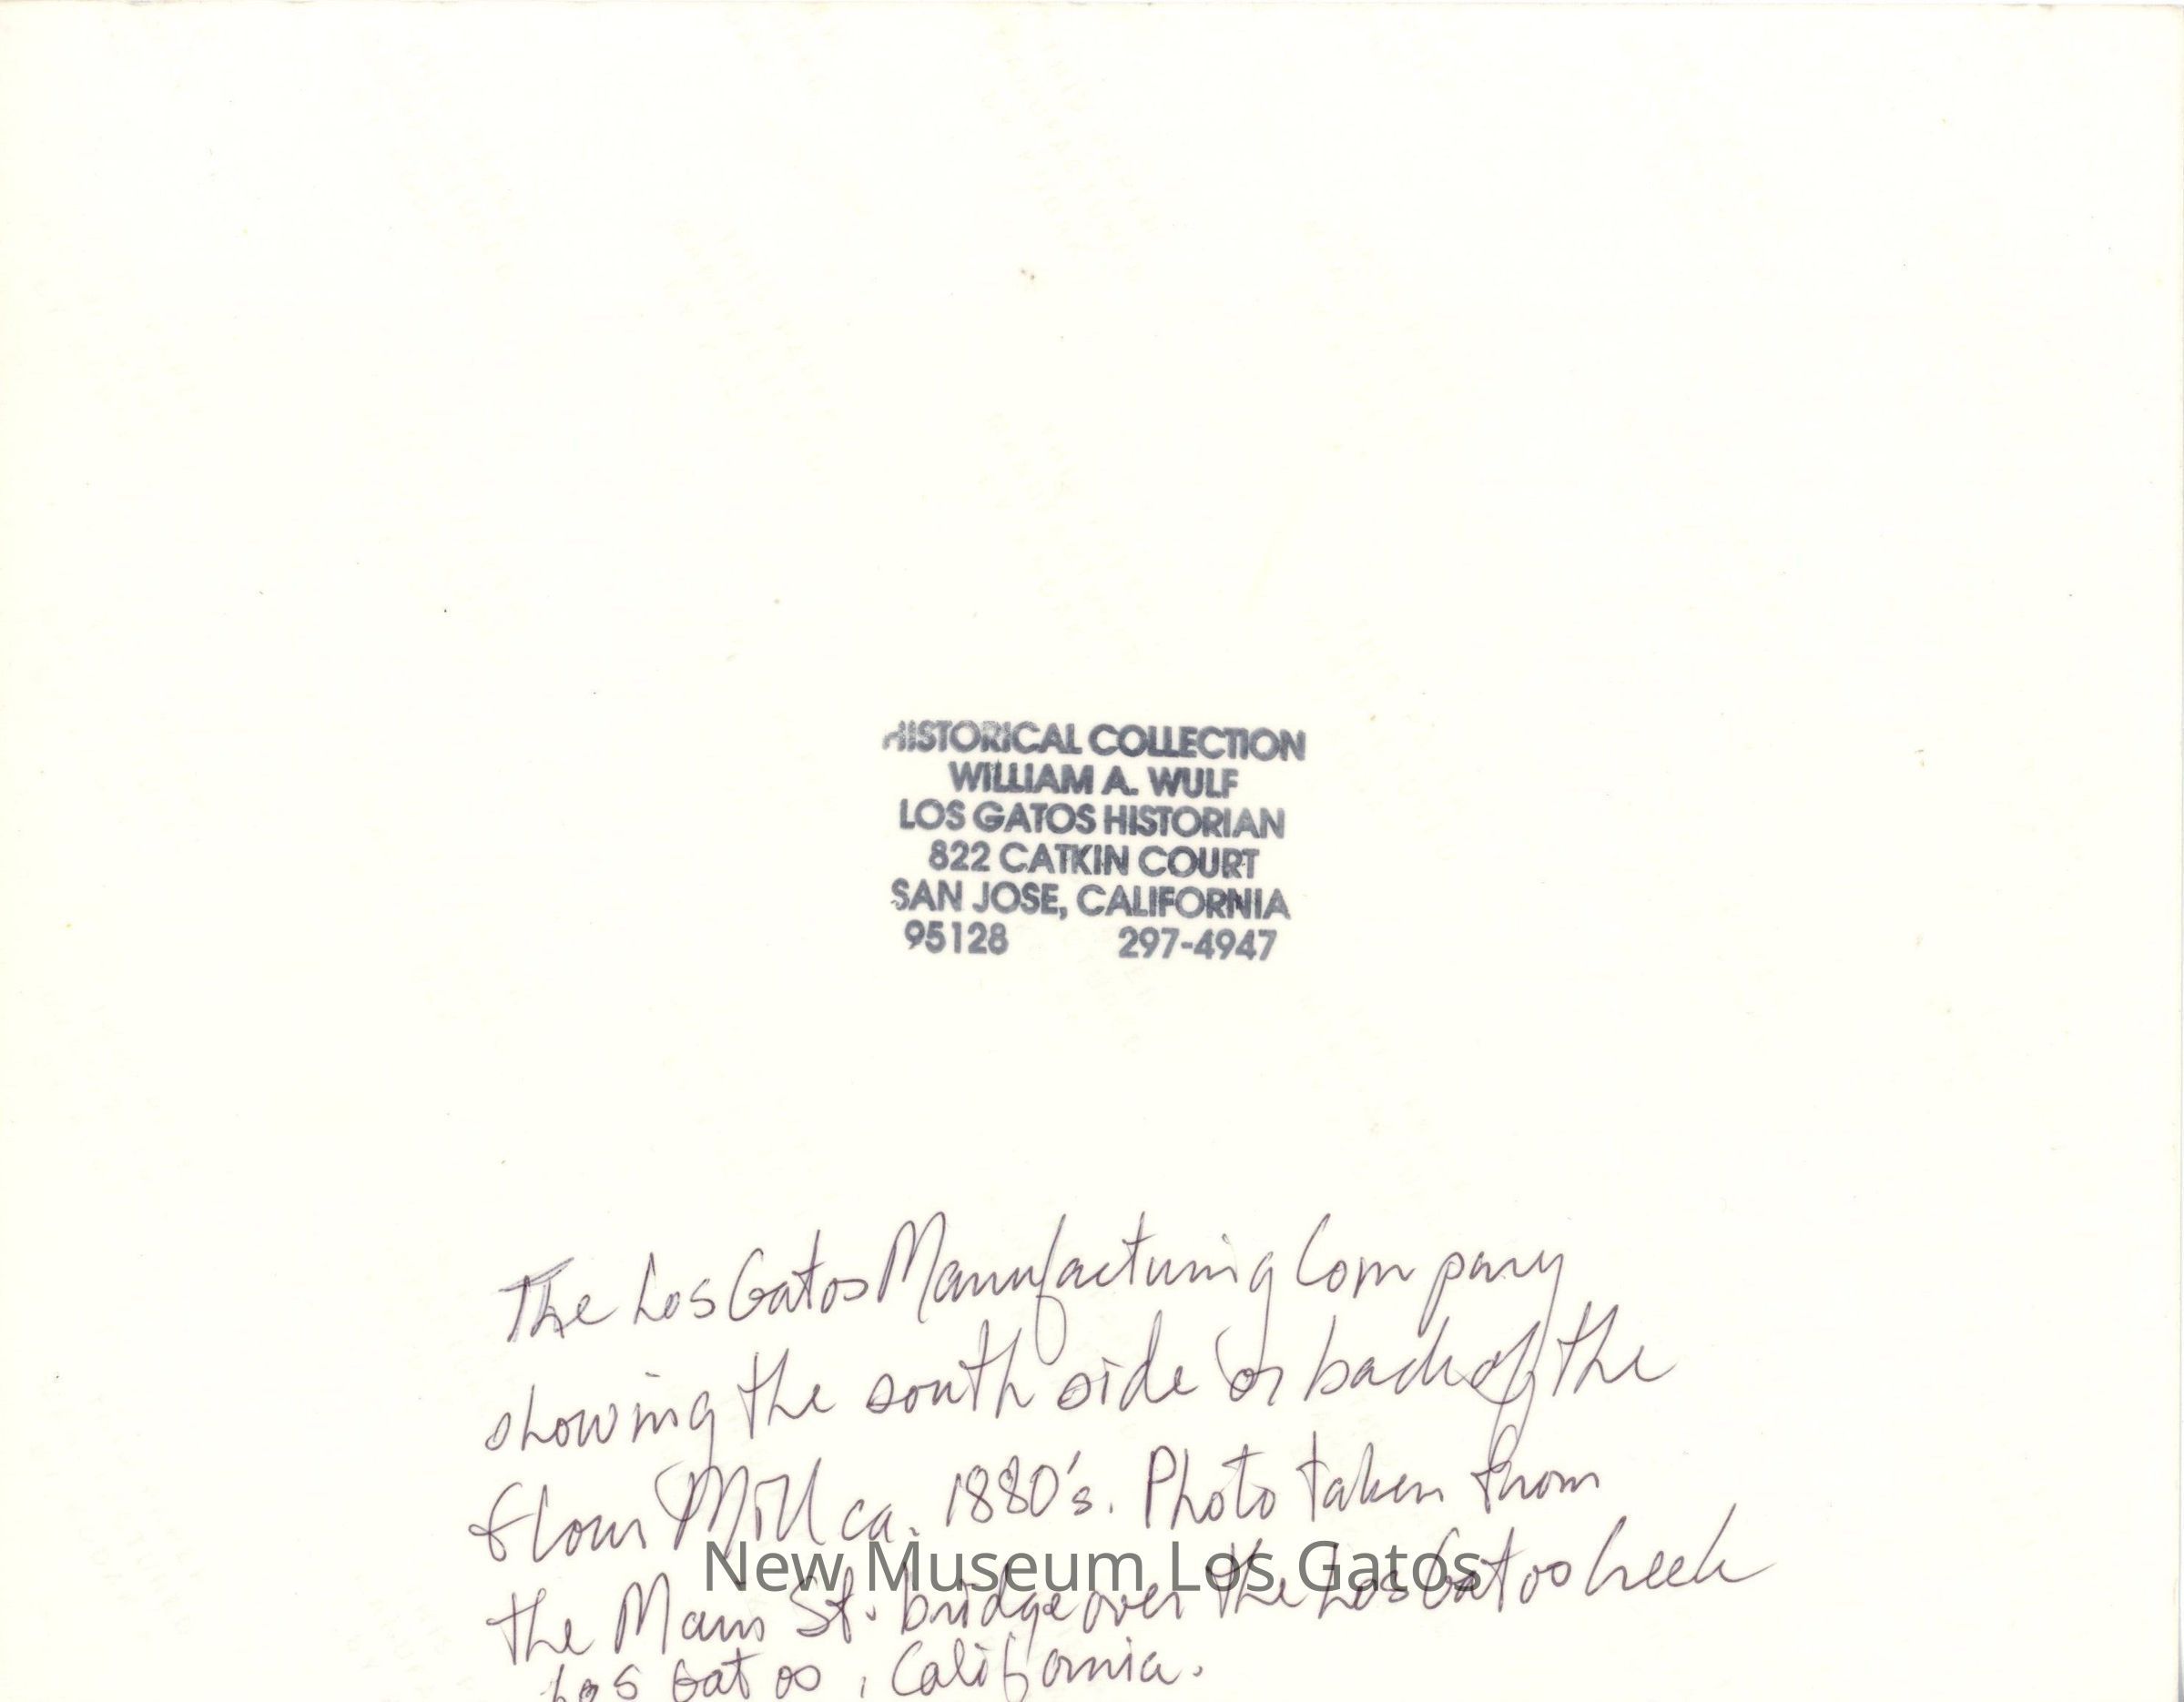 HISTORICAL COLLECTION
WILLIAM A. WULF
LOS GATOS HISTORIAN
822 CATKIN COURT
SAN JOSE, CALIFORNIA
95128 297-4947
The Los Gatos Manufacturing Company
showing the south side or back of the
flour Mill ca. 1880's. Photo taken from
the Main St. bridge over the Los Gatos Creek
Los Gatos, California.
New Museum Los Gatos